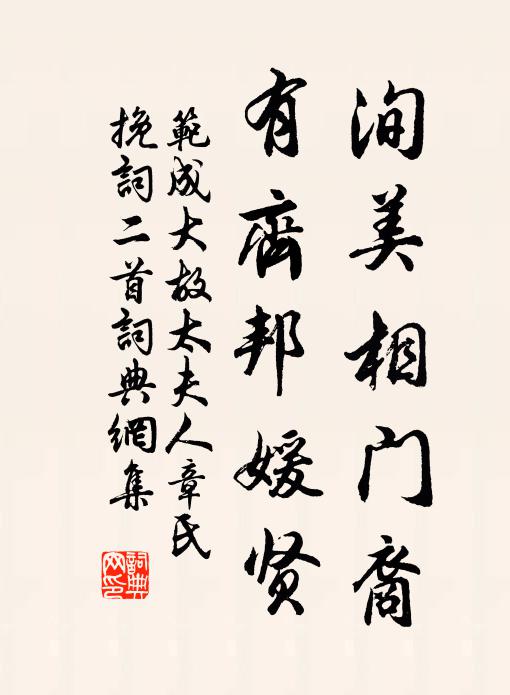 洵美相门裔
有齊邦媛贤
範成大故太夫人章氏
挽詞二首詞典網集
詞典
网印